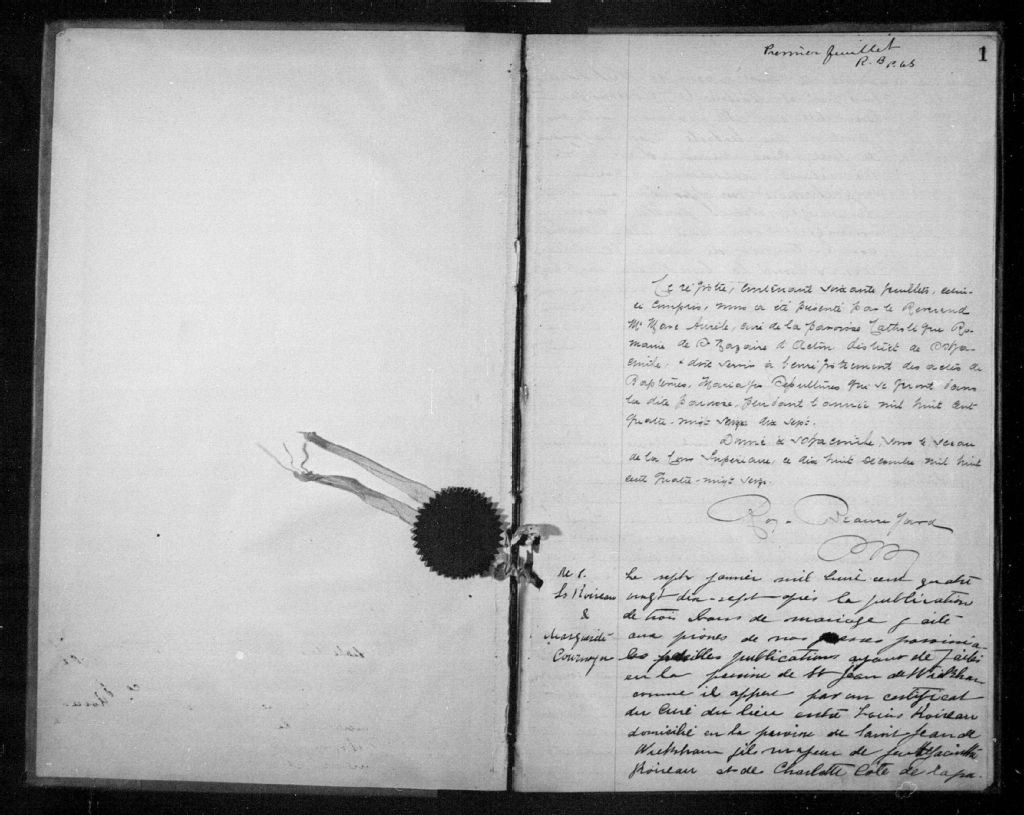 Premier feuillet
R. B. P. C. S.
1
Ce régistre, contenant soixante feuillets, celui-
ci compris, nous a été présenté par le Révérend
Mr Marc Aurèle, curé de la paroisse Catholique Ro-
maine de St Nazaire d'Acton district de
doit servir à l'enrégistrement des actes de
Baptêmes, Mariages Sépultures qui se feront dans
la dite paroisse, pendant l'année mil huit cent
quatre-vingt dix sept.
Donné à sous le sceau
de la Cour Supérieure, ce dix huit décembre mil huit
cent quatre-vingt seize.
M 1.
Ls Roireau
&
Marguerite
Cournoyer
Le sept janvier mil huit cent quatre
vingt dix-sept après la publication
de trois bans de mariage faite
aux prônes de nos messes paroissia-
les publications ayant été faites
en la paroisse de St Jean de Wickham
comme il appert par un certificat
du Curé du lieu entre Louis Roireau
domicilié en la paroisse de Saint Jean de
Wickham fils majeur de feu Hyacinthe
Roireau et de Charlotte Côté de la pa-